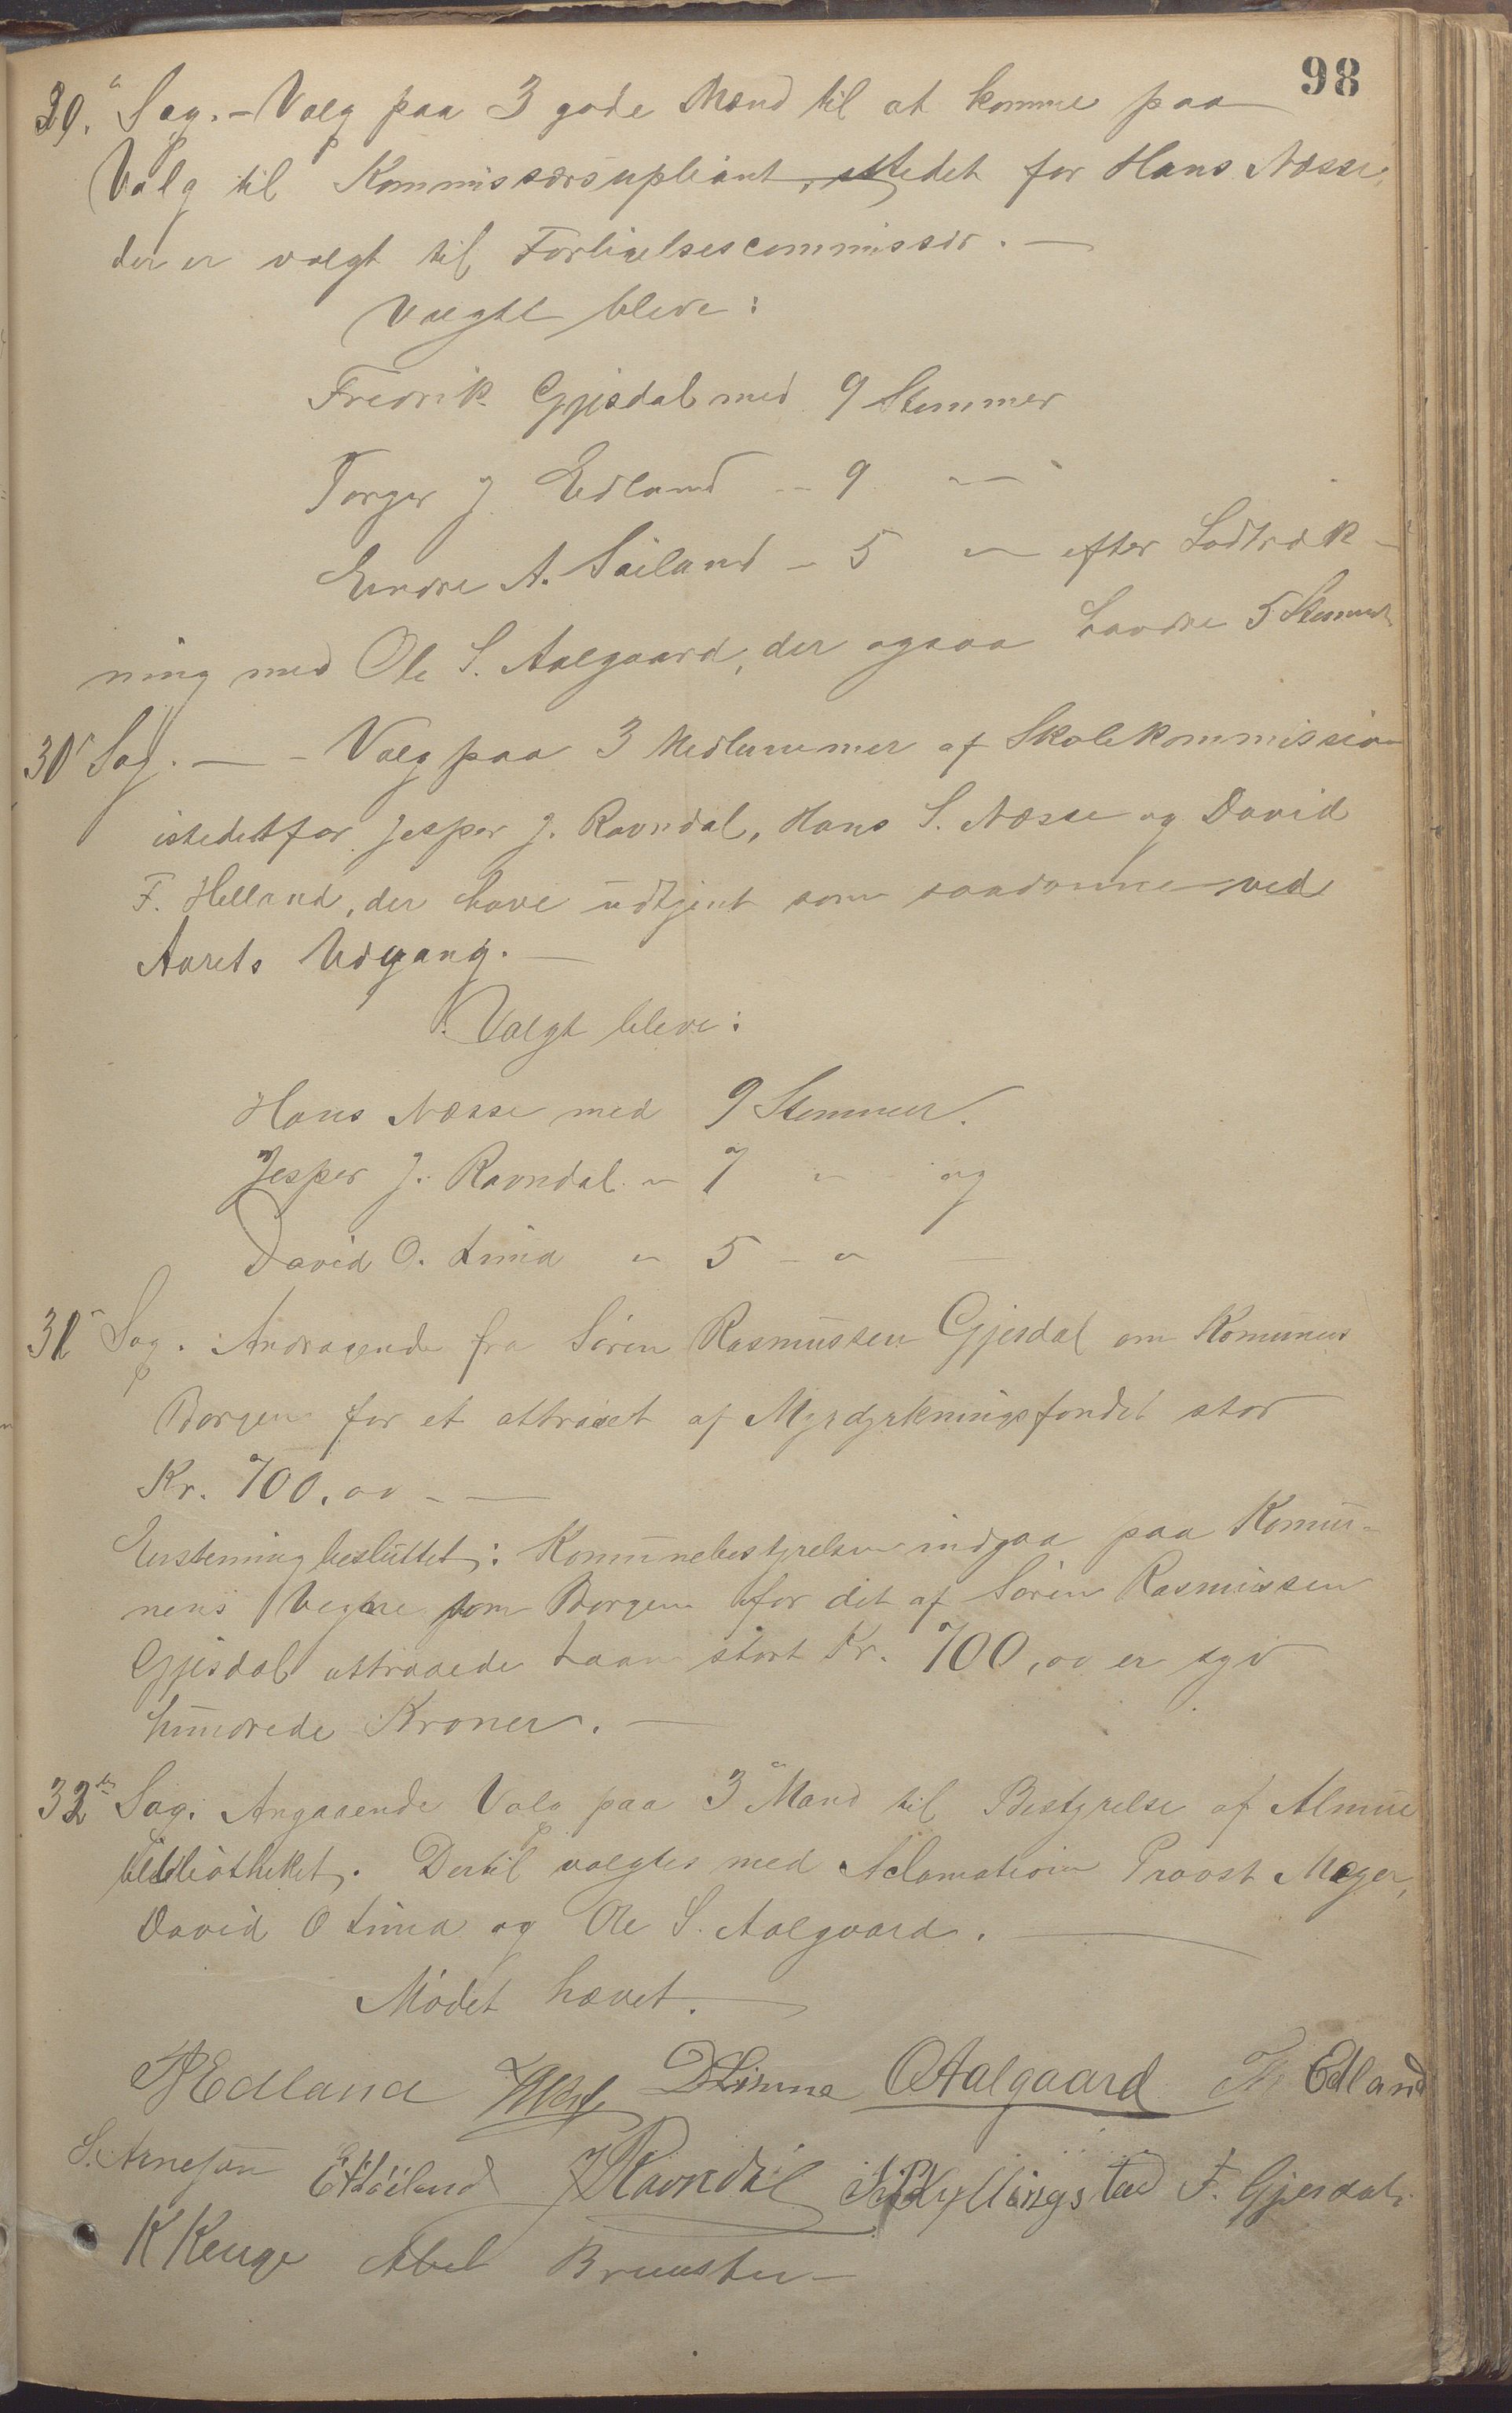 98
29. Sag. - Valg paa 3 gode Mænd til at komme paa
Valg til Kommissærsupliant, istedet for Hans Næsse,
der er valgt til Forligelsescommissær. —
Valgte bleve:
Fredrik Gjesdal med 9 Stemmer
Torger J. Edland - 9 —
Endre A. Söiland - 5 — efter Lodtræk-
ning med Ole S. Aalgaard, der ogsaa havde 5 Stemmer
30te Sag. — - Valg paa 3 Medlemmer af Skolekommission
istedetfor Jesper J. Ravndal, Hans S. Næsse og David
F. Helland, der have udtjent som saadanne ved
Aarets Udgang. —
Valgt bleve:
Hans Næsse med 9 Stemmer.
Jesper J. Ravndal - 7 - og
David O. Lima - 5 - -
31te Sag. Andragende fra Sören Rasmussen Gjesdal om Komunens
Borgen for et attraaet af Myrdyrkningsfondet stor
Kr. 700,00 - —
Enstemmig besluttet: Komunebestyrelsen indgaa paa Komu-
nens Vegne som Borgen for det af Sören Rasmussen
Gjesdal attraaede Laan stort Kr. 700,00 er syv
hundrede Kroner. —
32te Sag. Angaaende Valg paa 3 Mand til Bestyrelse af Almue
bibliotheket. Dertil valgtes med Aclamation Provst Meyer,
David O Lima og Ole S. Aalgaard. —
Mödet hævet.
Edland DLima OAalgaard T. Edland
S. Arnesen EASöiland JJRavndal Kyllingstad F. Gjesdal.
K Kenge Abel Brunsten